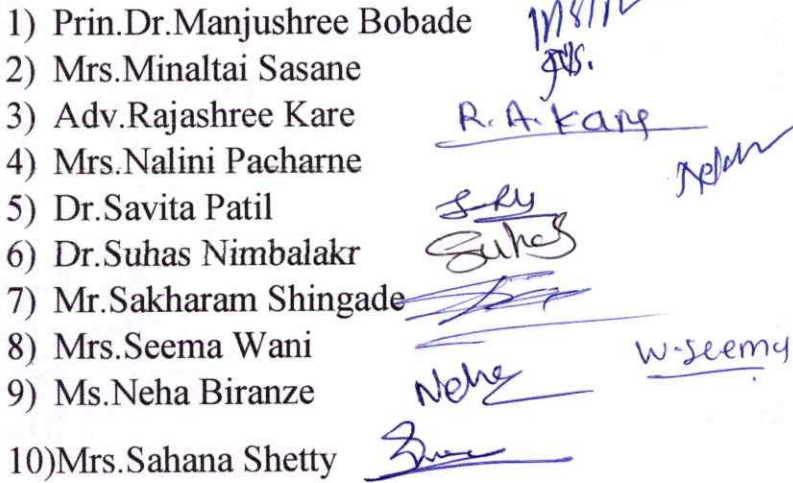 1) Prin.Dr.Manjushree Bobade
2) Mrs.Minaltai Sasane
3) Adv.Rajashree Kare R. A. Kare
4) Mrs.Nalini Pacharne
5) Dr.Savita Patil
6) Dr.Suhas Nimbalakr Suhas
7) Mr.Sakharam Shingade
8) Mrs.Seema Wani W.Seema
9) Ms.Neha Biranze Neha
10)Mrs.Sahana Shetty